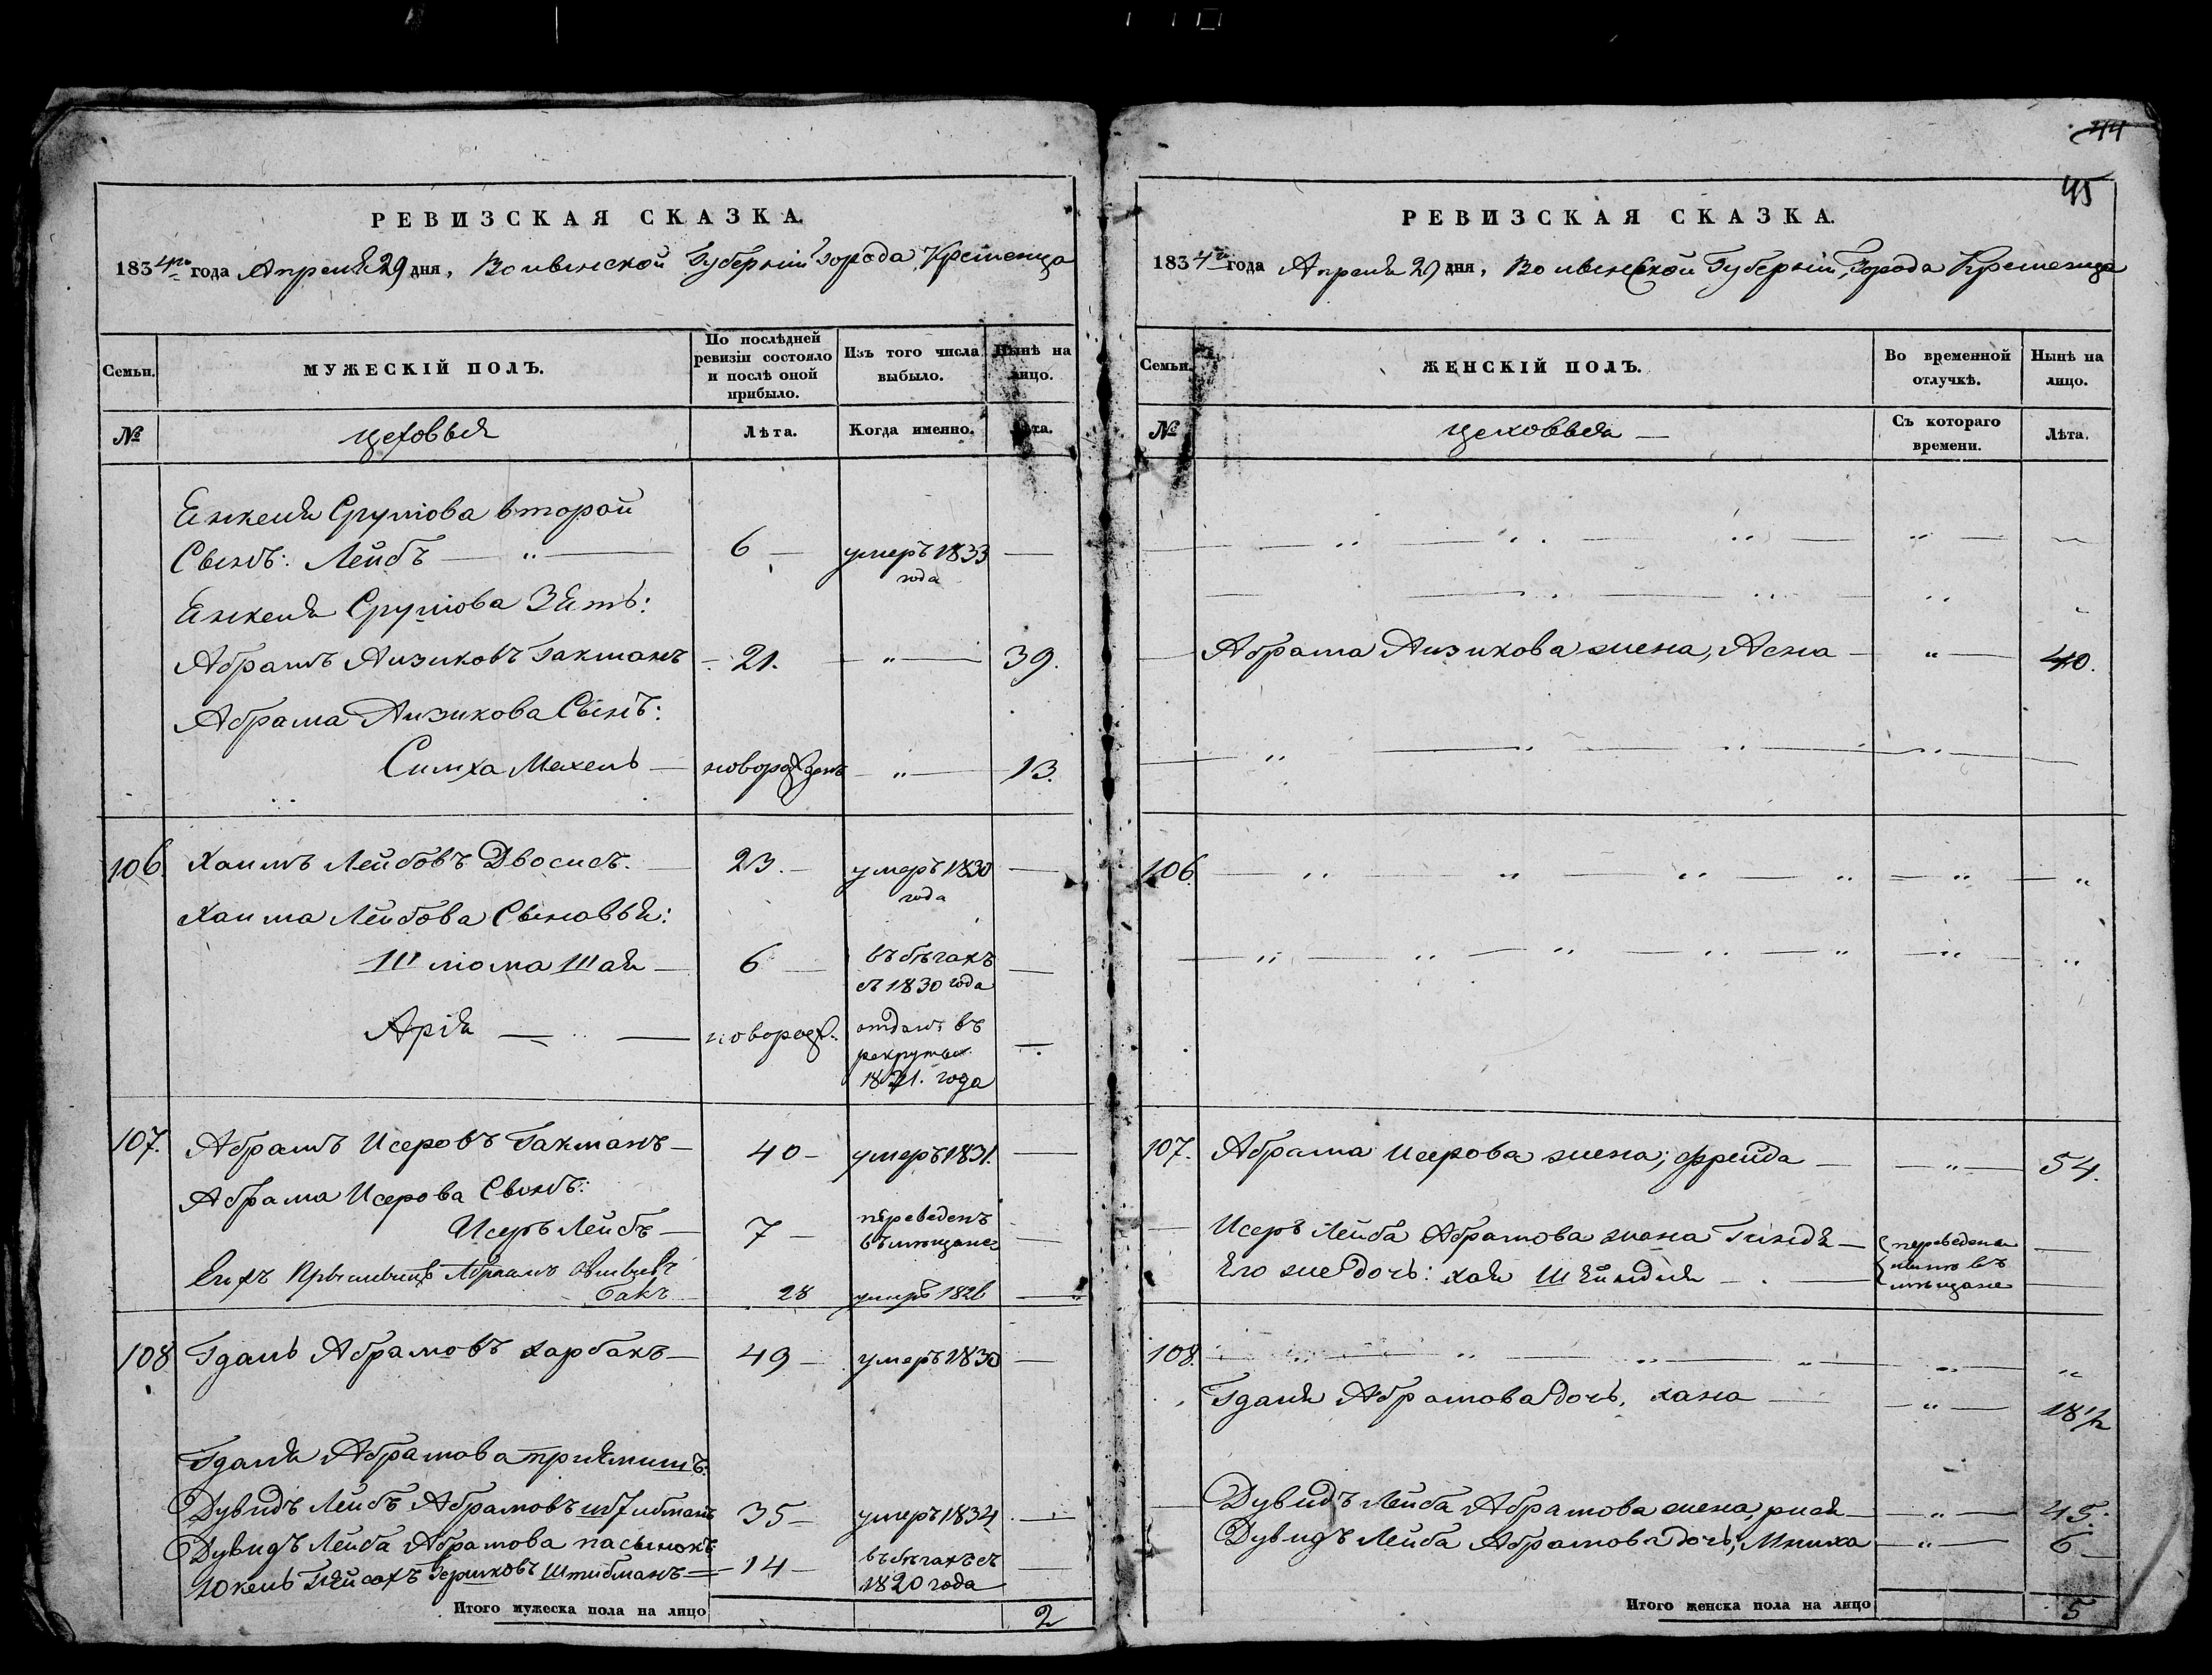 РЕВИЗСКАЯ СКАЗКА.
1834го года Апреля 29 дня, Волынской Губерніи Города Кременца
Семьи.
МУЖЕСКІЙ ПОЛЪ.
По послѣдней ревизіи состояло и послѣ оной прибыло.
Изъ того числа выбыло.
Нынѣ на лицо.
№
цеховыя
Лѣта.
Когда именно.
Лѣта.
Сруліова второй
Сынъ: Лейбъ — 6 — умеръ 1833 года —
Сруліова Зять:
Абрамъ Аизиковъ Гакманъ — 21. — 39.
Абрама Аизикова Сынъ:
Симха Мехель — новорожденъ — 13.
106. Хаимъ Лейбовъ Двосисъ. 23. — умеръ 1830 года —
Хаима Лейбова Сыновья:
Шлиома Шая — 6 — въ бѣгахъ съ 1830 года —
Арія — новорож. отданъ въ рекруты 1821. года —
107. Абрамъ Исеровъ Гакманъ — 40 — умеръ 1831. —
Абрама Исерова Сынъ:
Исеръ Лейбъ — 7 — переведенъ въ мѣщане —
Ихъ Абрамъ
Бакъ 28 умеръ 1826 —
108 Гдаль Абрамовъ Харбакъ — 49 — умеръ 1830 —
Гдаля Абрамова приямишъ:
Дувидъ Лейбъ Абрамовъ 35 — умеръ 1834 —
Дувидъ Лейба Абрамова пасынокъ
Юкель Пейсахъ Гершковъ Штибманъ — 14 — въ бѣгахъ съ 1820 года —
Итого мужеска пола на лицо 2
44
45
РЕВИЗСКАЯ СКАЗКА.
1834го года Апреля 29 дня, Волынской Губерніи, Города Кременца
Семьи.
ЖЕНСКІЙ ПОЛЪ.
Во временной отлучкѣ.
Нынѣ на лицо.
№
цеховыя —
Съ котораго времени.
Лѣта.
Абрама Аизикова жена, Асна — 40.
106.
107. Абрама Исерова жена; Фрейда — 54.
Исеръ Лейба Абрамова жена Гиндя — переведена
Его же дочь: Хая Шейндля — въ мѣщане
108.
Гдаля Абрамова дочь, Хана — 18½
Дувидъ Лейба Абрамова жена, Рися — 45.
Дувидъ Лейба Абрамова дочь, — 6
Итого женска пола на лицо 5